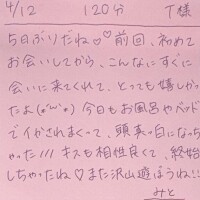 4/12 120分 T様
5日ぶりだね♡♡前回、初めて
お会いしてから、こんなにすぐに
会いに来てくれて、とっても嬉しかっ
たよ(о´ω`о)今日もお風呂やベッド
でイかされまくって、頭真っ白になっち
ゃった///キスも相性良くて、終始
しちゃったね♡また沢山遊ぼうね!!
みと